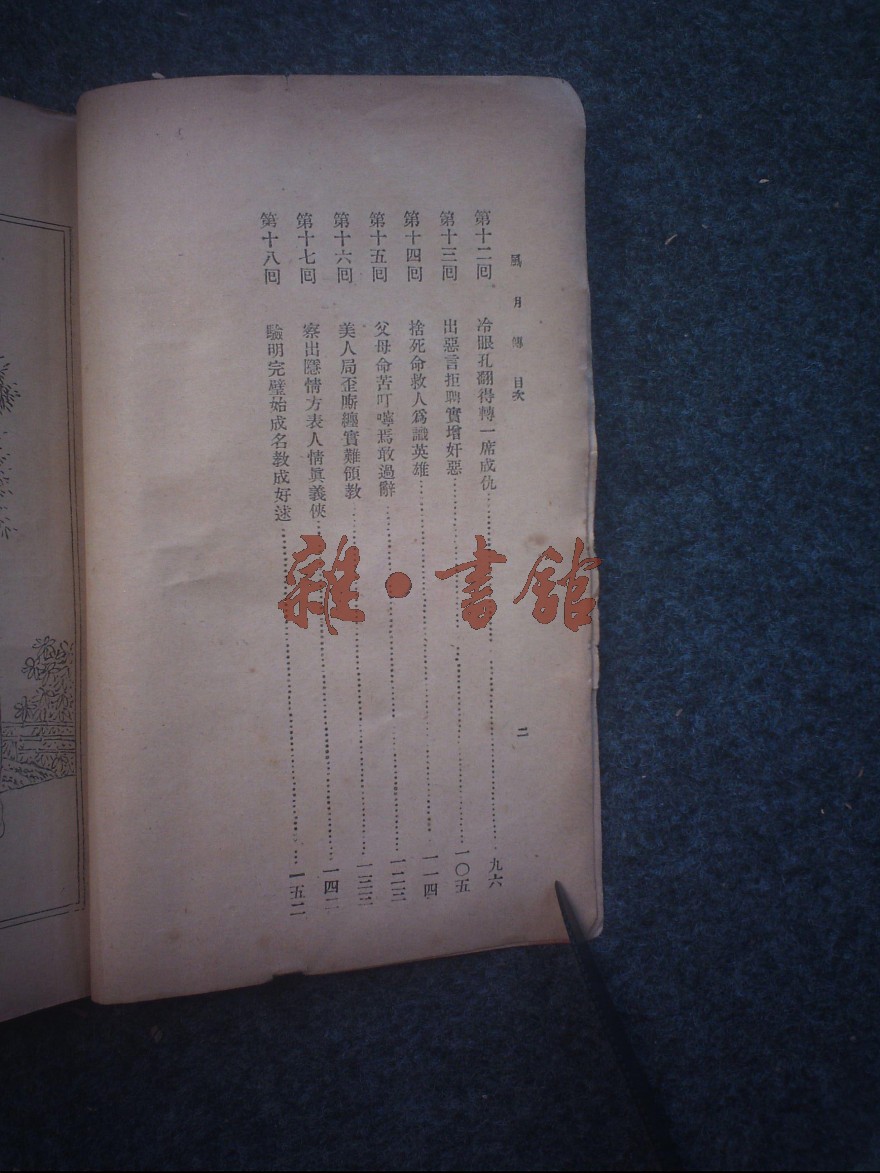 風月傳 目次
二
第十二回 冷眼孔翻得轉一席成仇 九六
第十三回 出惡言拒聘實增奸惡 一〇五
第十四回 捨死命救人爲識英雄 一一四
第十五回 父母命苦叮嚀焉敢過辭 一二三
第十六回 美人局歪廝纏實難領教 一三三
第十七回 察出隱情方表人情眞義俠 一四二
第十八回 驗明完璧始成名教成好逑 一五二
雜·書館